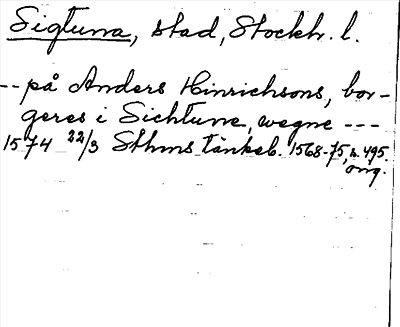 Sigtuna, stad, Stockh. l.
-- på Anders Hinrichsons, bor-
geres i Sichtune, wegne ---
1574 22/3 Sthms tänkeb. 1568-75, s. 495.
orig.